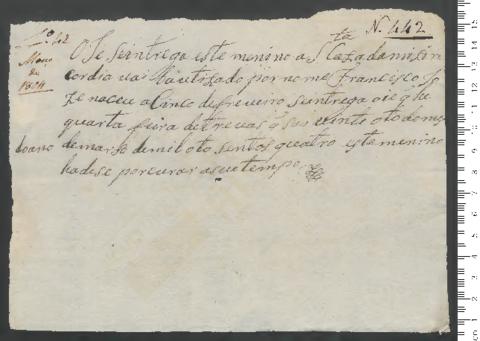 N. 442
O Se seintrega este menino a Sta Caza damiziri
cordia vai Bautizado por nome Francisco Jo
ze naceu a Cinco defreveiro seintrega oie q he
quarta feira detrevas q sao vinte oto do mes
demarso demil oto sentos quatro este menino
hadise porcurar aseu tempo